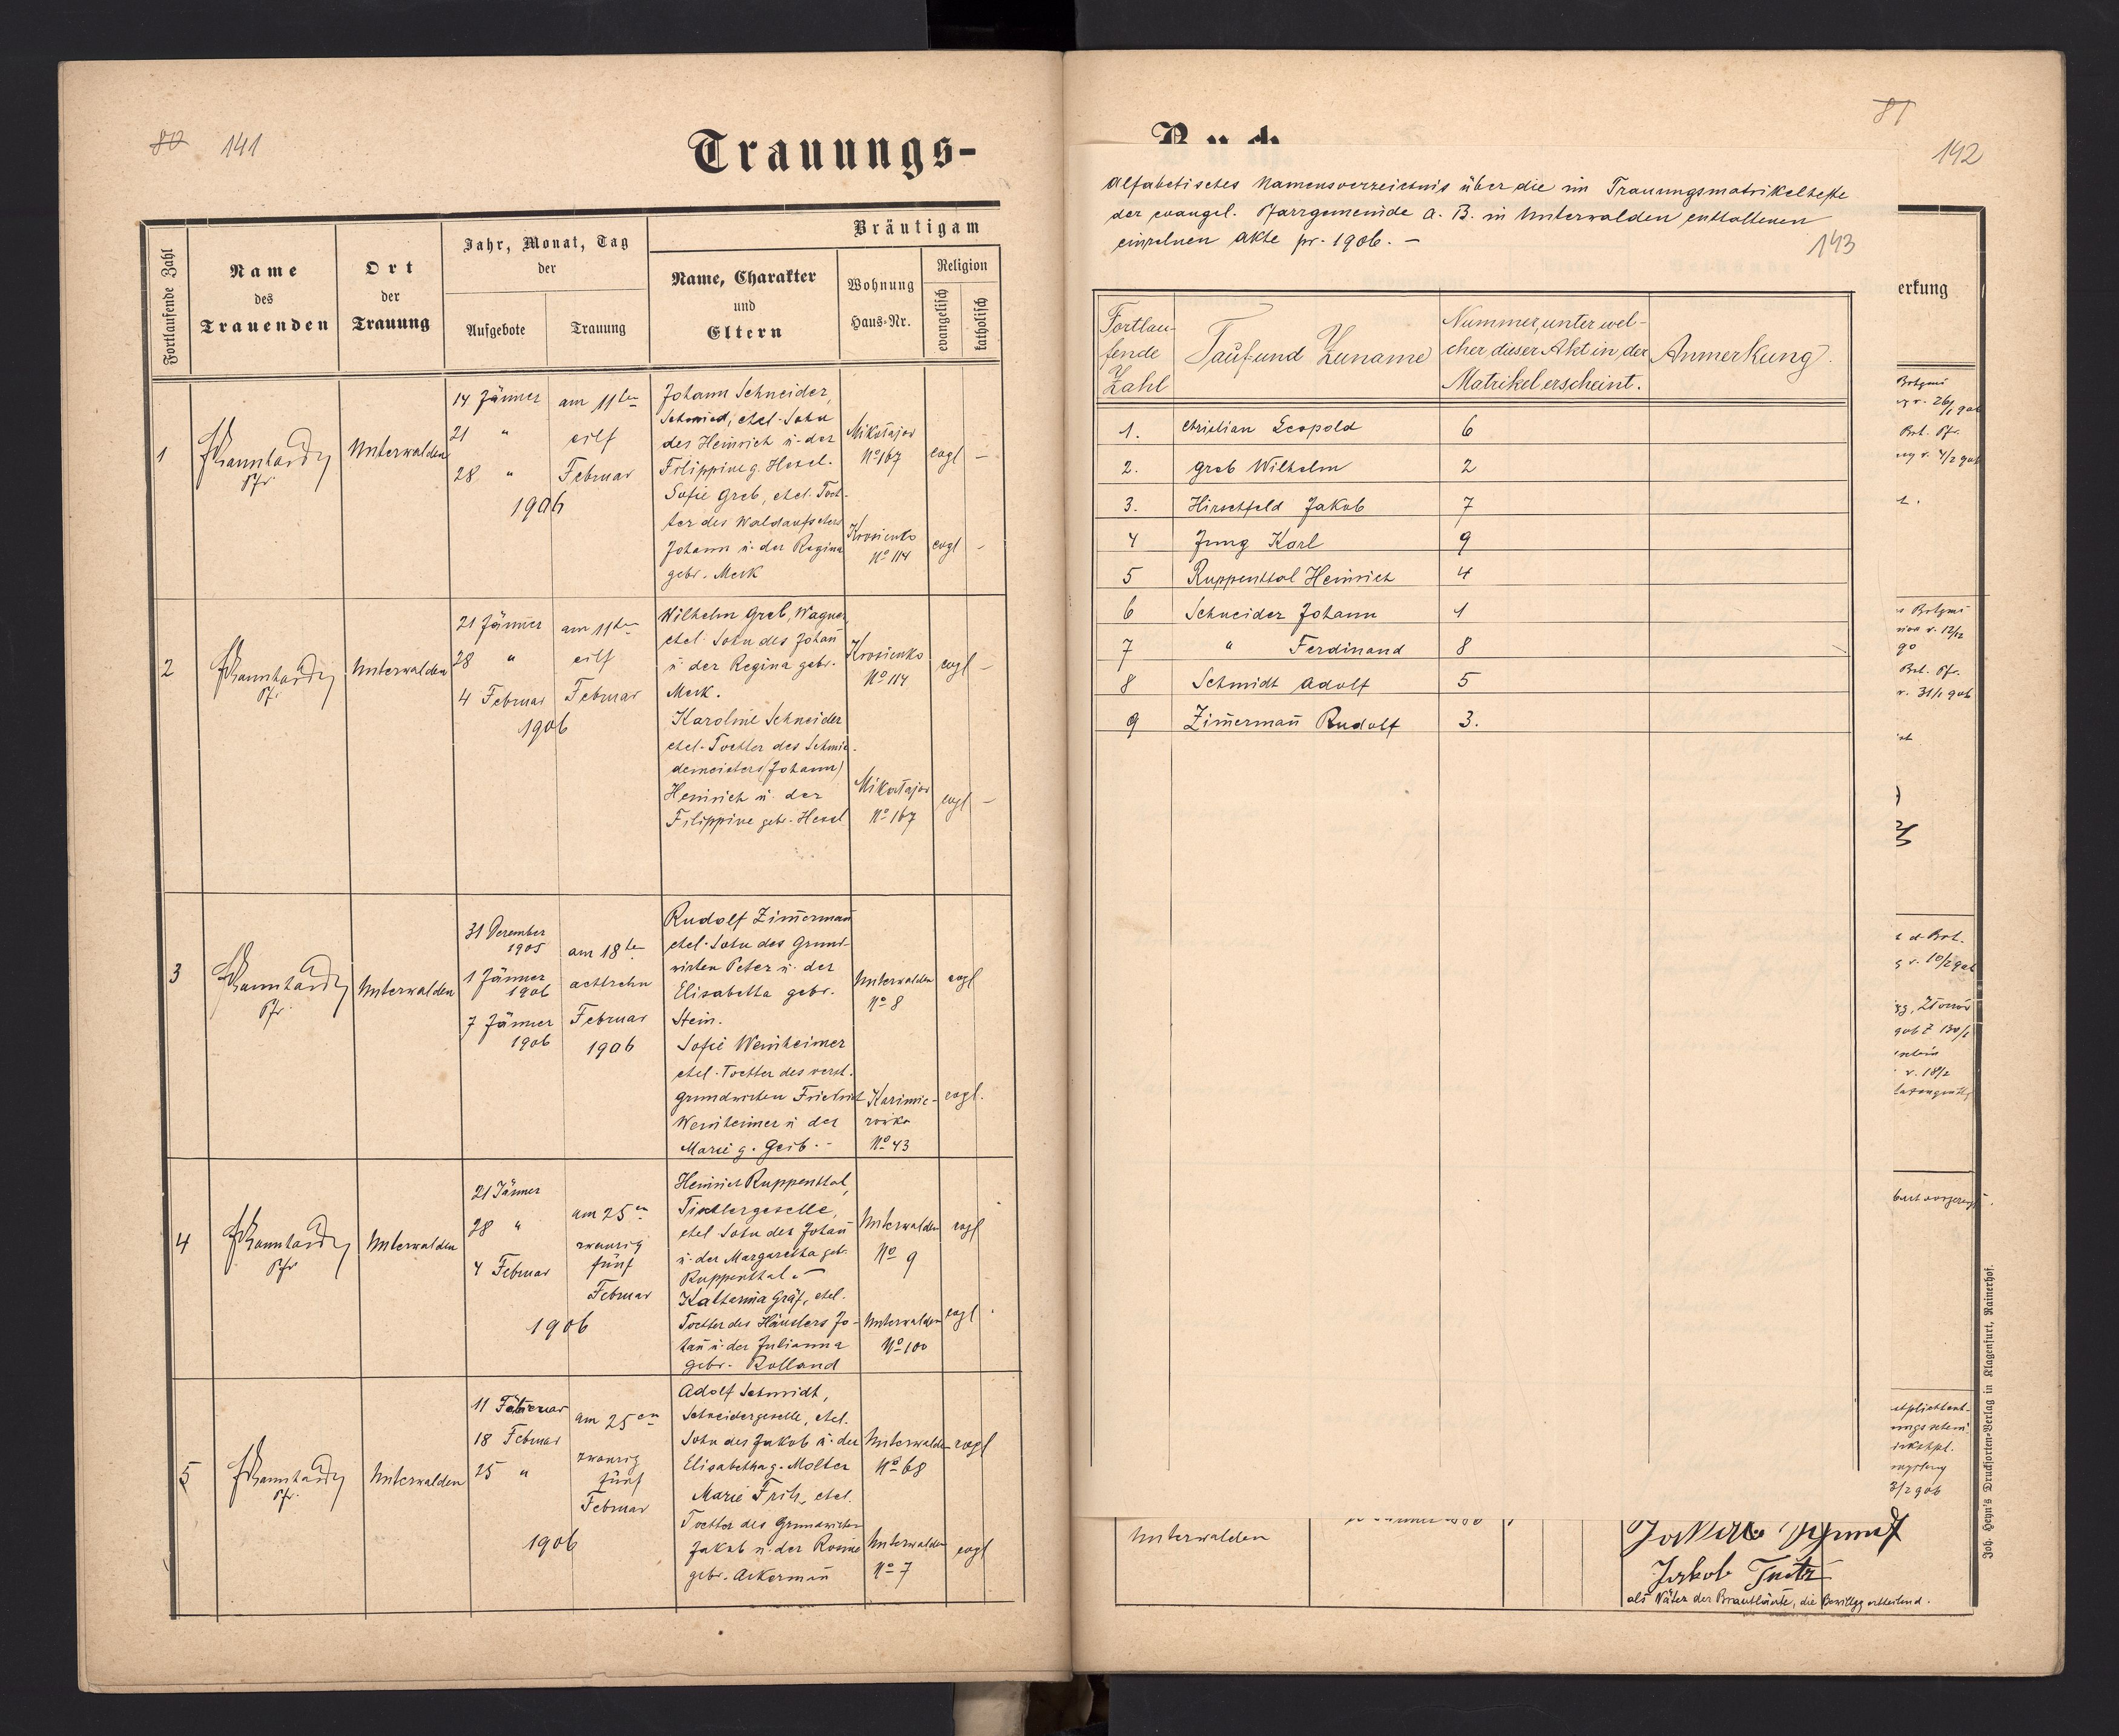 80 141
Trauungs-
Fortlaufende Zahl
Name
des
Trauenden
Ort
der
Trauung
Jahr, Monat, Tag
der
Aufgebote
Trauung
Bräutigam
Name, Charakter
und
Eltern
Wohnung
Haus-Nr.
Religion
evangelisch
katholisch
1
Pfr.
Unterwalden
14 Jänner
21 "
28 "
1906
am 11ten
eilf
Februar
Johann Schneider,
Schmied, ehel. Sohn
des Heinrich u. der
Filippine g. Hexel.
Sofie Greb, ehel. Toch-
ter des Waldaufsehers
Johann u. der Regina
gebr. Merk
Mikołajow
No 167
evgl –
Krosienko
No 114
evgl –
2
Pfr.
Unterwalden
21 Jänner
28 "
4 Februar
1906
am 11ten
eilf
Februar
Wilhelm Greb, Wagner
ehel. Sohn des Johan̄
u. der Regina gebr.
Merk.
Karoline Schneider
ehel. Tochter des Schmie-
demeisters (Johann)
Heinrich u. der
Filippine gebr. Hexel
Krosienko
No 114
evgl –
Mikołajow
No 167
evgl –
3
Pfr.
Unterwalden
31 Dezember
1905
1 Jänner
1906
7 Jänner
1906
am 18ten
achtzehn
Februar
1906
Rudolf Zim̄erman̄
ehel. Sohn des Grund-
wirten Peter u. der
Elisabetha gebr.
Stein.
Sofie Weinheimer
ehel. Tochter des verst.
Grundwirten Friedrich
Weinheimer u der
Marie g. Geib. -
Unterwalden
No 8
evgl
Kazimie-
rowka
No 43
evgl.
4
Pfr
Unterwalden
21 Jänner
28 "
4 Februar
1906
am 25en
zwanzig
fünf
Februar
Heinrich Ruppenthal,
Tischlergeselle,
ehel Sohn des Johan̄
u. der Margaretha geb.
Ruppenthal. –
Katharina Gräf, ehel.
Tochter des Häuslers Jo-
han̄ u. der Julianna
gebr. Rolland
Unterwalden
No 9
evgl
Unterwalden
No 100
evgl
5
Pfr.
Unterwalden
11 Februar
18 Februar
25 "
1906
am 25en
zwanzig
fünf
Februar
Adolf Schmidt,
Schneidergeselle, ehel.
Sohn des Jakob u. der
Elisabetha g. Molter
Marie ehel.
Tochter des Grundwirten
Jakob u. der
gebr. Ackerman̄
Unterwalden
No 68
evgl
Unterwalden
No 7
evgl
Buch.
81
142
Alfabetisches Namensverzeichnis über die im Trauungsmatrikelhefte
der evangel. Pfarrgemeinde A. B. in Unterwalden enthaltenen
einzelnen Akte pr. 1906. –
143
Fortlau-
fende
Zahl
Tauf und Zuname
Nummer, unter wel-
cher dieser Akt in der
Matrikel erscheint.
Anmerkung.
1. Christian Leopold 6
2. Greb Wilhelm 2
3. Hirschfeld Jakob 7
4 Jung Karl 9
5 Ruppenthal Heinrich 4
6 Schneider Johann 1
7 " Ferdinand 8
8 Schmidt Adolf 5
9 Zim̄erman̄ Rudolf 3.
erkung
Unterwalden
Jakob
als Väter der Brautleute, die Bewillgg ertheilend.
Joh. Heyn's Drucksorten-Verlag in Klagenfurt, Rainerhof.